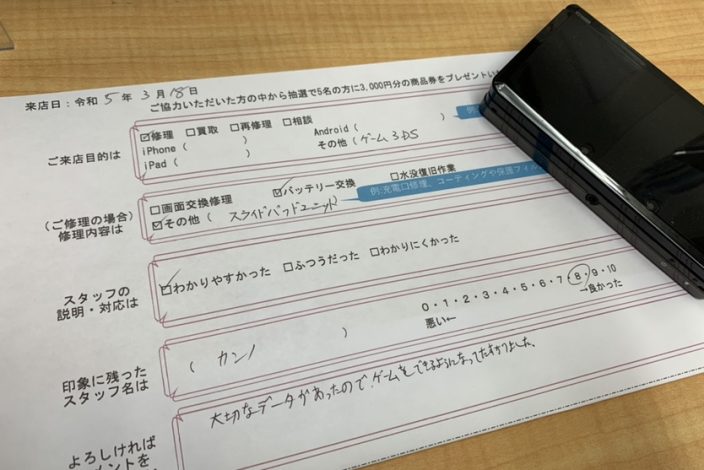 来店日：令和 5 年 3 月 18日
ご協力いただいた方の中から抽選で5名の方に3,000円分の商品券をプレゼントいた
ご来店目的は
☑修理 □買取 □再修理 □相談
iPhone ( ) Android ( )
iPad ( ) その他 (ゲーム 3DS
例
(ご修理の場合)
修理内容は
□画面交換修理 ☑バッテリー交換 □水没復旧作業
☑その他 ( スライドパッドユニット
例:充電口修理、コーティングや保護フィル
スタッフの
説明・対応は
☑わかりやすかった □ふつうだった □わかりにくかった
0・1・2・3・4・5・6・7・8・9・10
悪い← →良かった
印象に残った
スタッフ名は
( カンノ )
よろしければ
大切なデータがあったので、ゲームをできるようになってたすかりました。